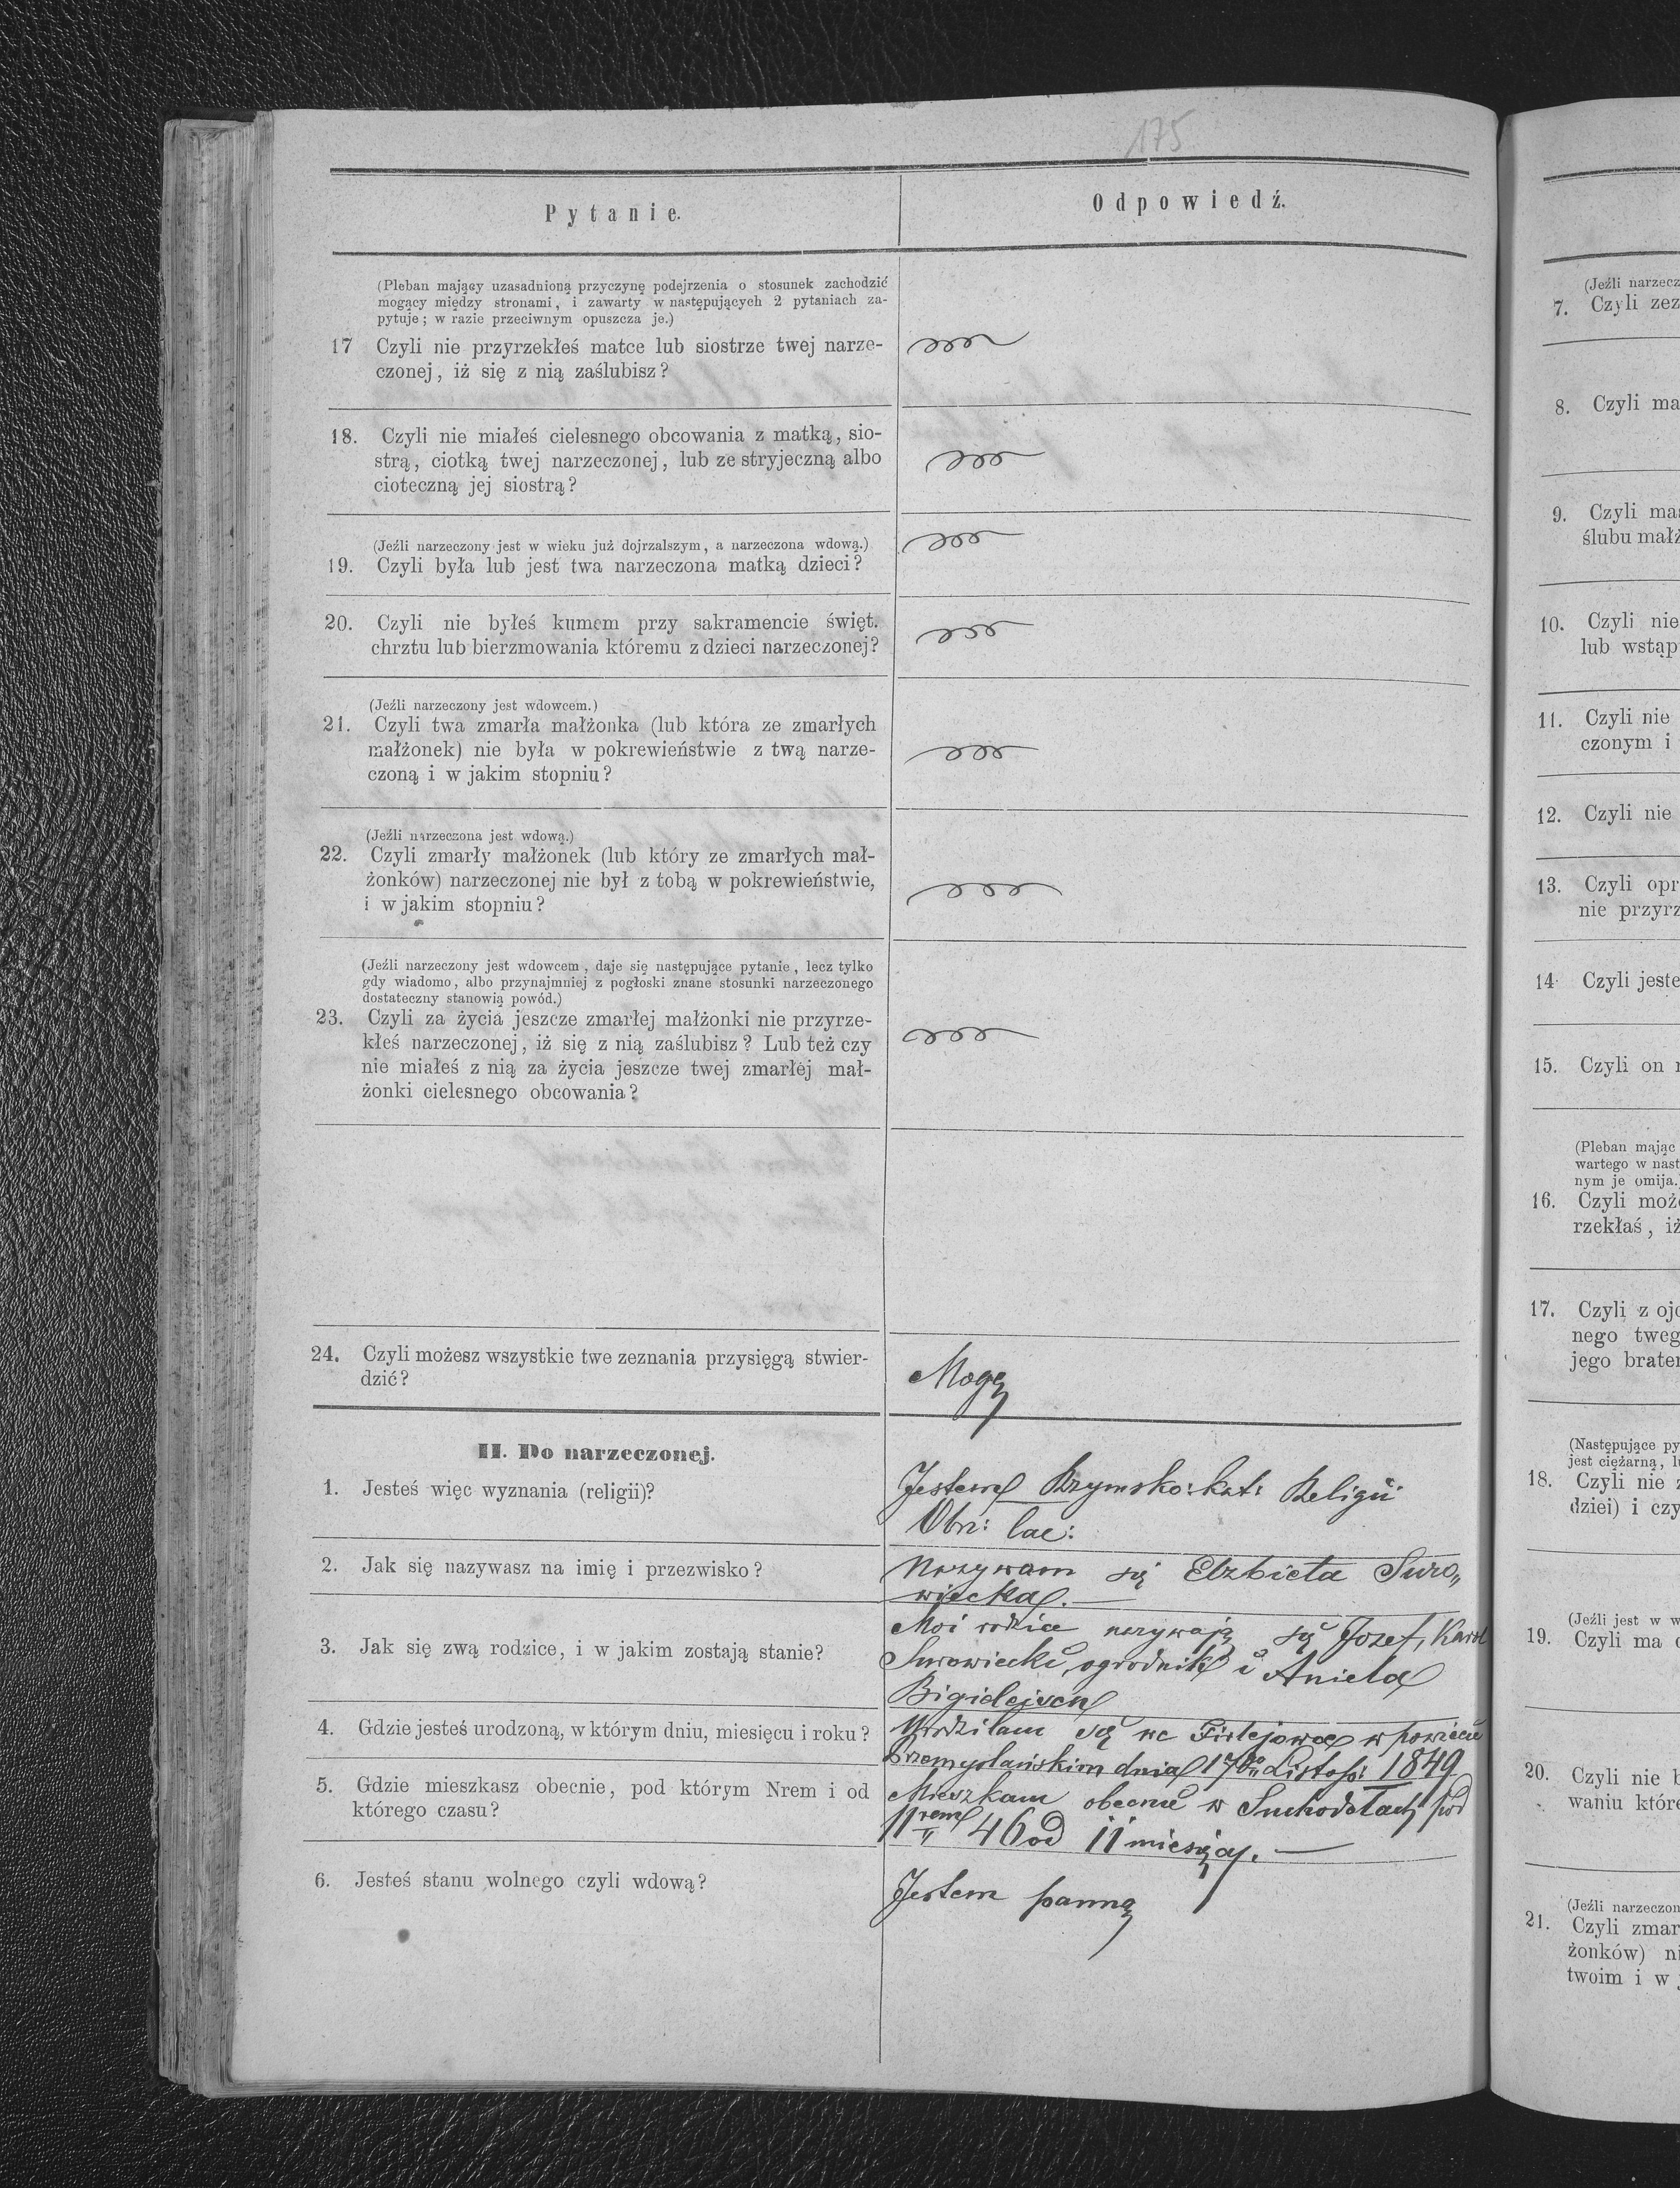 175
Pytanie.
Odpowiedź.
(Pleban mający uzasadnioną przyczynę podejrzenia o stosunek zachodzić
mogący między stronami, i zawarty w następujących 2 pytaniach za-
pytuje; w razie przeciwnym opuszcza je.)
17 Czyli nie przyrzekłeś matce lub siostrze twej narze-
czonej, iż się z nią zaślubisz?
18. Czyli nie miałeś cielesnego obcowania z matką, sio-
strą, ciotką twej narzeczonej, lub ze stryjeczną albo
cioteczną jej siostrą?
(Jeźli narzeczony jest w wieku już dojrzalszym, a narzeczona wdową.)
19. Czyli była lub jest twa narzeczona matką dzieci?
20. Czyli nie byłeś kumem przy sakramencie święt.
chrztu lub bierzmowania któremu z dzieci narzeczonej?
(Jeźli narzeczony jest wdowcem.)
21. Czyli twa zmarła małżonka (lub która ze zmarłych
małżonek) nie była w pokrewieństwie z twą narze-
czoną i w jakim stopniu?
(Jeźli narzeczona jest wdową.)
22. Czyli zmarły małżonek (lub który ze zmarłych mał-
żonków) narzeczonej nie był z tobą w pokrewieństwie,
i w jakim stopniu?
(Jeźli narzeczony jest wdowcem, daje się następujące pytanie, lecz tylko
gdy wiadomo, albo przynajmniej z pogłoski znane stosunki narzeczonego
dostateczny stanowią powód.)
23. Czyli za życia jeszcze zmarłej małżonki nie przyrze-
kłeś narzeczonej, iż się z nią zaślubisz? Lub też czy
nie miałeś z nią za życia jeszcze twej zmarłej mał-
żonki cielesnego obcowania?
24. Czyli możesz wszystkie twe zeznania przysięgą stwier-
dzić?
Mogę
II. Do narzeczonej.
1. Jesteś więc wyznania (religii)?
Jestem Rzymsko: kat: Religii
Obrz: łac:
2. Jak się nazywasz na imię i przezwisko?
Nazywam się Elżbieta Suro„
wiecka. —
3. Jak się zwą rodzice, i w jakim zostają stanie?
Moi rodzice nazywają się Jozef, Karol
Surowiecki, ogrodnik i Aniela
4. Gdzie jesteś urodzoną, w którym dniu, miesięcu i roku?
Urodziłam się we Firlejowce w powiecie
Przemyslańskim dnia 17go Listop: 1849
5. Gdzie mieszkasz obecnie, pod którym Nrem i od
którego czasu?
Mieszkam obecnie w Suchodołach pod
Nrem 46 od 11 miesięcy. —
6. Jesteś stanu wolnego czyli wdową?
Jestem panną
(Jeźli narzecz
7. Czyli zez
8. Czyli ma
9. Czyli mas
ślubu małż
10. Czyli nie
lub wstąp
11. Czyli nie
czonym i
12. Czyli nie
13. Czyli opr
nie przyrz
14 Czyli jeste
15. Czyli on
(Pleban mając
wartego w nast
nym je omija.
16. Czyli może
rzekłaś, iż
17. Czyli z ojc
nego tweg
jego brate
(Następujące py
jest ciężarną, l
18. Czyli nie z
dziei) i czy
(Jeźli jest w w
19. Czyli ma
20. Czyli nie b
waniu które
(Jeźli narzeczon
21. Czyli zmar
żonków) ni
twoim i w